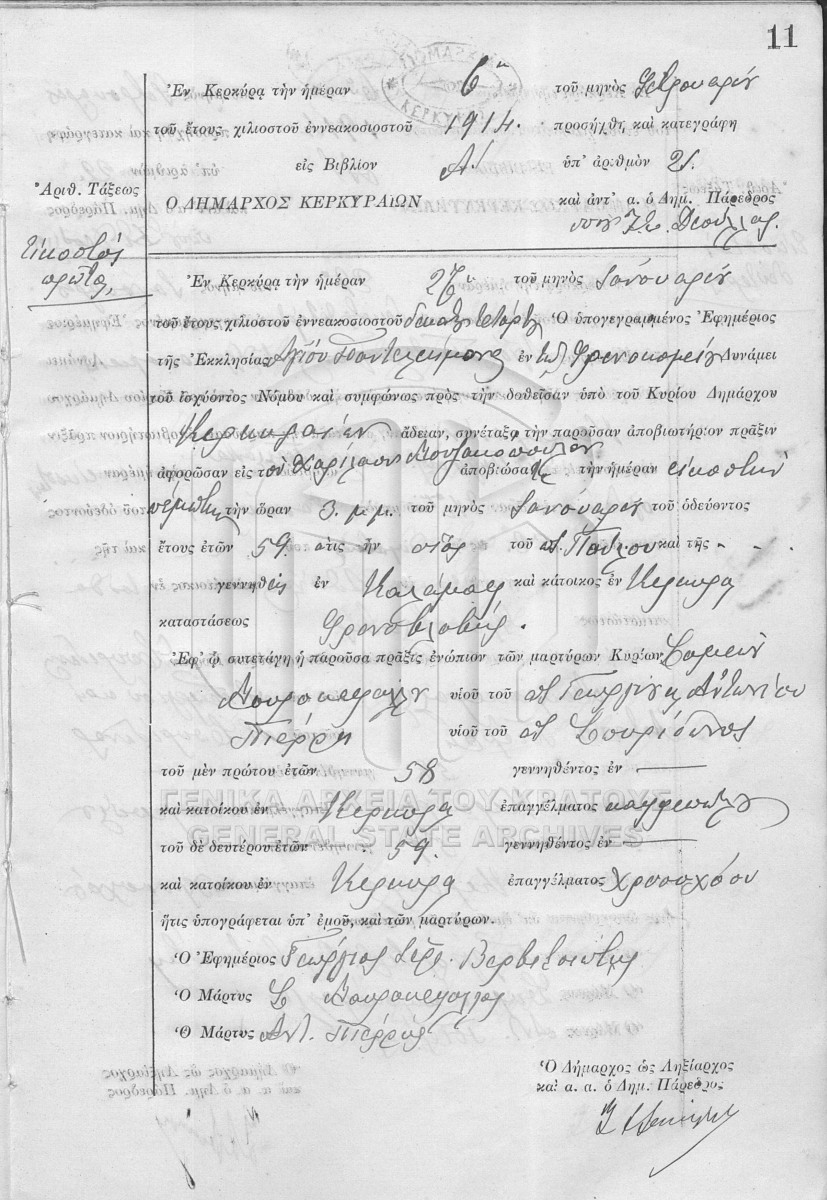 11
Ἐν Κερκύρᾳ τὴν ἡμέραν 6ην τοῦ μηνὸς Φεβρουαρίου
τοῦ ἔτους χιλιοστοῦ ἐννεακοσιοστοῦ 1914 προσήχθη καὶ κατεγράφη
εἰς Βιβλίον Α' ὑπ' ἀριθμὸν 21.
Ἀριθ. Τάξεως
Ο ΔΗΜΑΡΧΟΣ ΚΕΡΚΥΡΑΙΩΝ καὶ ἀντ' α. ὁ Δημ. Πάρεδρος
Εἰκοστὸς
πρῶτος
Ἐν Κερκύρᾳ τὴν ἡμέραν 27ην τοῦ μηνὸς Ἰανουαρίου
τοῦ ἔτους χιλιοστοῦ ἐννεακοσιοστοῦ δεκάτου τετάρτου Ὁ ὑπογεγραμμένος Ἐφημέριος
τῆς Ἐκκλησίας Ἁγίου Παντελεήμονος ἐν τῷ Φρενοκομείῳ Δυνάμει
τοῦ ἰσχύοντος Νόμου καὶ συμφώνως πρὸς τὴν δοθεῖσαν ὑπὸ τοῦ Κυρίου Δημάρχου
Κερκυραίων ἄδειαν, συνέταξα τὴν παροῦσαν ἀποβιωτήριον πρᾶξιν
ἀφορῶσαν εἰς τὸν Χαρίλαον ἀποβιώσαντα τὴν ἡμέραν εἰκοστὴν
πέμπτην τὴν ὥραν 3. μ.μ. τοῦ μηνὸς Ἰανουαρίου τοῦ ὁδεύοντος
ἔτους ἐτῶν 59. ὅτις ἦν υἱὸς τοῦ ποτ. Παύλου καὶ τῆς - -
γεννηθεὶς ἐν Καλάμας καὶ κάτοικος ἐν Κέρκυρα
καταστάσεως Φρενοβλαβής.
Ἐφ' ᾧ συνετάγη ἡ παροῦσα πρᾶξις ἐνώπιον τῶν μαρτύρων Κυρίων
υἱοῦ τοῦ ποτ Γεωργίου κ Ἀντωνίου
Πιέρρη υἱοῦ τοῦ ποτ Σπυρίδωνος
τοῦ μὲν πρώτου ἐτῶν 58 γεννηθέντος ἐν —
καὶ κατοίκου ἐν Κέρκυρα ἐπαγγέλματος καφεπώλου
ΓΕΝΙΚΑ ΑΡΧΕΙΑ ΤΟΥ ΚΡΑΤΟΥΣ
GENERAL STATE ARCHIVES
τοῦ δὲ δευτέρου ἐτῶν 59. γεννηθέντος ἐν —
καὶ κατοίκου ἐν Κέρκυρα ἐπαγγέλματος χρυσοχόου
ἥτις ὑπογράφεται ὑπ' ἐμοῦ, καὶ τῶν μαρτύρων.
Ὁ Ἐφημέριος Γεώργιος Ἱερ.
Ὁ Μάρτυς Σ
Ὁ Μάρτυς Ἀντ. Πιέρρης
Ὁ Δήμαρχος ὡς Ληξίαρχος
καὶ α. α. ὁ Δημ. Πάρεδρος